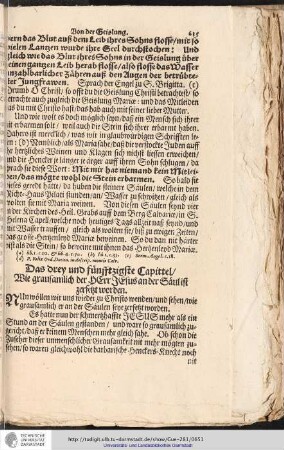 Von der Geislung. 615
vern das Blut auß dem Leib ihres Sohns flosse/ mit so
vielen Lantzen wurde ihre Seel durchstochen: Und
gleich wie das Blut ihres Sohns in der Geislung über
einen gantzen Leib herab flosse/ also flosse das Wasser
unzahlbarlicher Zähren auß den Augen der betrübe-
ter Jungfrawen. Sprach der Engel zu S. Brigitta. (c)
Drumb O Christ/ so offt du die Geislung Christi betrachtest/ so
betrachte auch zugleich die Geislung Mariæ: und das Mitleiden
das du mit Christo hast/ das hab auch mit seiner lieber Mutter.
Und wie wolt es doch möglich seyn/ daß ein Mensch sich ihrer
nit erbarmen solt/ wo auch die Stein sich ihrer erbarmt haben.
Dahero ist merckl/ was wir in glaubwürdigen Schrifften le-
sen: (d) Nemblich/ als Maria sahe/ daß die verstockte Juden auff
ihr hertzliches Weinen und Klagen sich nichts liessen erweichen/
und die Hencker je länger je ärger auff ihren Sohn schlugen/ da
sprach sie diese Wort: Mit mir hat niemand kein Mitlei-
den/ das mögte wohl die Stein erbarmen. So bald sie
dieses geredt hatte/ da huben die steinere Säulen/ welche in dem
Richt-Haus Pilati stunden/ an/ Wasser zu schwitzen/ gleich als
wolten sie mit Maria weinen. Von diesen Säulen seynd vier
in der Kirchen des Heil. Grabs auff dem Berg Calvariæ/ in S.
Helena Capell/ welche noch heutiges Tags allzeit naß seynd/ und
mit Wasser trauffen/ gleich als wolten sie/ biß zu ewigen Zeiten/
das grosse Hertzenleyd Mariæ beweinen. So du dan nit härter
bist als die Stein/ so beweine mit ihnen das Hertzenleyd Mariæ.
Das drey und fünfftzigste Capittel/
Wie grausamlich der HErr JEsus an der Säul ist
zersetzt worden.
NUn wöllen wir uns wieder zu Christo wenden/ und sehen/ wie
grausamlich er an der Säulen seye zersetzt worden.
Es hatte nun der schmertzhaffte JESUS mehr als ein
Stund an der Säulen gestanden/ und ware so grausamlich zu-
gericht/ daß er keinem Menschen mehr gleich sahe. Ob schon die
Zuseher dieser unmenschlicher Grausamkeit mit mehr mögten zu-
sehen/ so waren gleichwohl die barbarische Henckers-Knecht noch
nit
TECHNISCHE UNIVERSITÄT DARMSTADT
http://tudigit.ulb.tu-darmstadt.de/show/Gue-281/0651
Universitäts- und Landesbibliothek Darmstadt